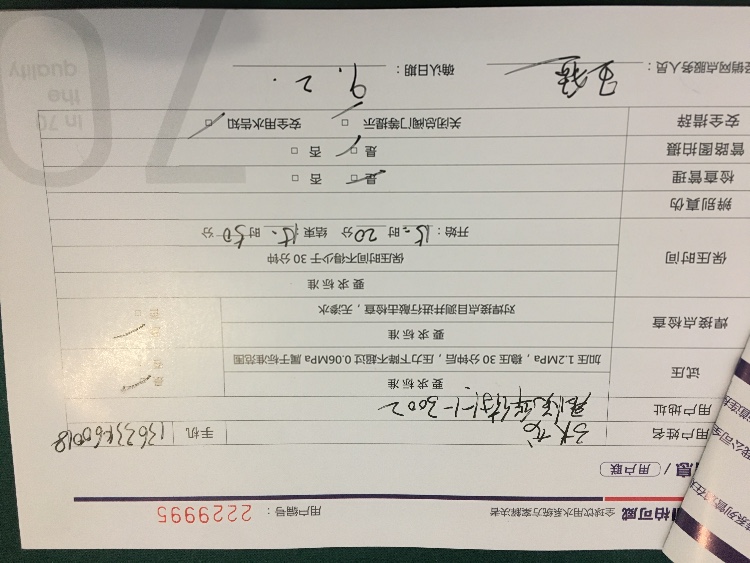 柏可威 全球饮用水系统方案解决者 用户编号：2229995
息 / 用户联
用户姓名 手机
用户地址 1-3002
试压 要求标准
加压1.2MPa，稳压30分钟后，压力下降不超0.06MPa属于标准范围
焊接点检查 要求标准
对焊接点目测并进行敲击检查，无渗水
保压时间 要求标准
保压时间不得少于30分钟
开始：15时20分 结束15时50分
辨别真伪
检查管理 是 否
管路图拍摄 是 否
安全措辞 关闭总阀门等提示 安全用水告知
经销网点服务人员： 确认日期：9.2.
in 70
the
quality
70